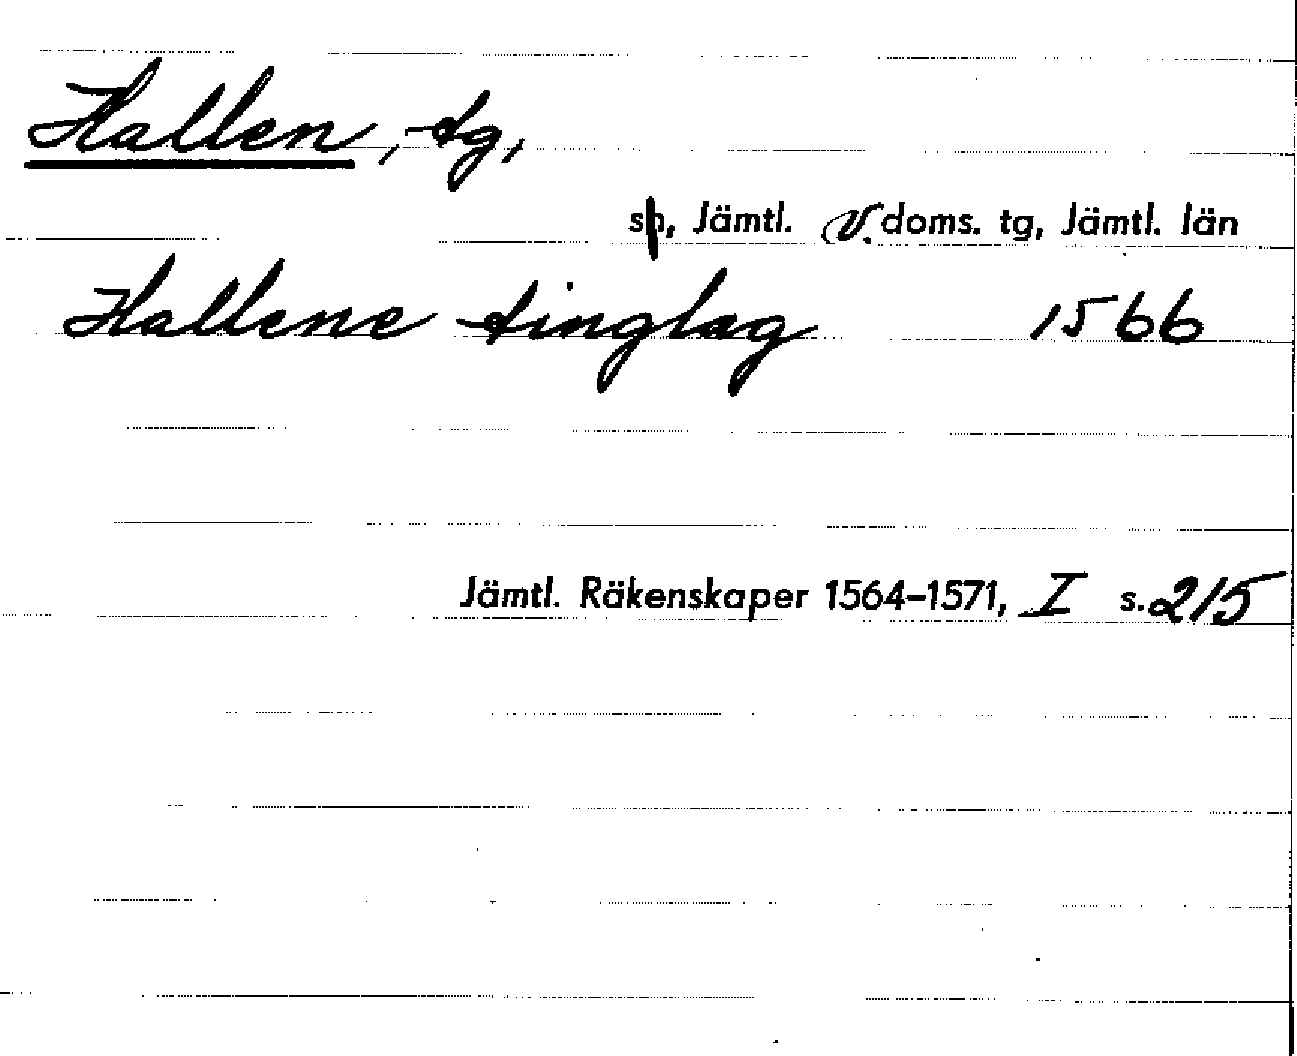 Hallen, tg,
sn, Jämtl. v. doms. tg, Jämtl. län
Hallene tinglag 1566
Jämtl. Räkenskaper 1564-1571, I s. 215